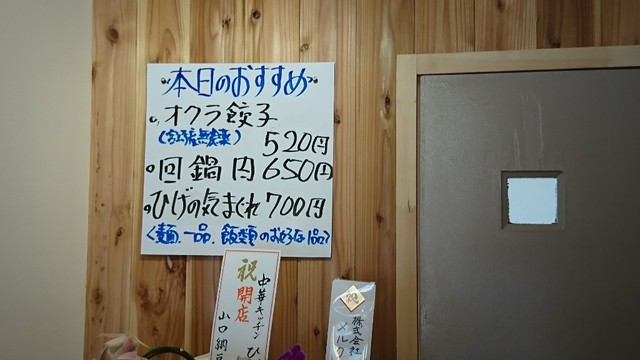 本日のおすすめ
オクラ餃子
520円
回鍋肉 650円
ひげの気まぐれ 700円
〈麺.一品.飯類のお好きな品〉
祝開店
中華キッチン ひ
山口納豆
祝
株式会社
メルク